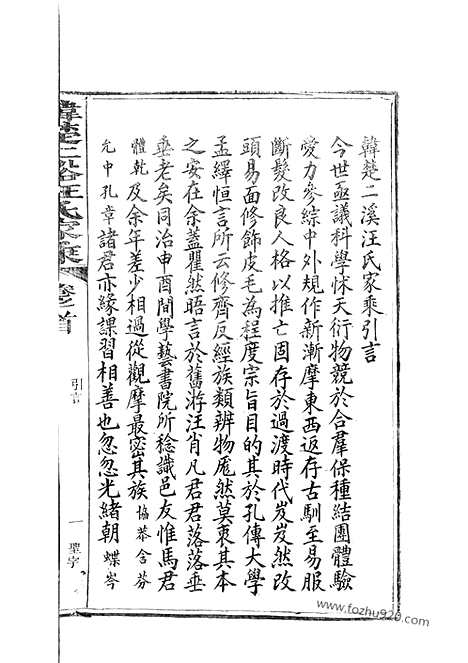 韓楚二溪汪氏家乘引言
今世亟議科學怵天衍物競於合羣保種結團體驗
愛力參綜中外規作新漸摩東西返存古馴至易服
斷髮改良人格以推亡固存於過渡時代岌岌然改
頭易面修飾皮毛為程度宗旨目的其於孔傳大學
孟繹恒言所云修齊反經族類辨物厖然莫衷其本
之安在余蓋瞿然晤言於舊游汪肖凡君君落落垂
垂老矣同治申酉間學藝書院所稔識邑友惟馬君
體乾及余年差少相過從觀摩最密其族協恭含芬
允中孔章諸君亦緣課習相善也忽忽光緒朝蝶岑
韓楚二溪汪氏家乘 卷之首
引言
一 聖字
www.fozhu920.com